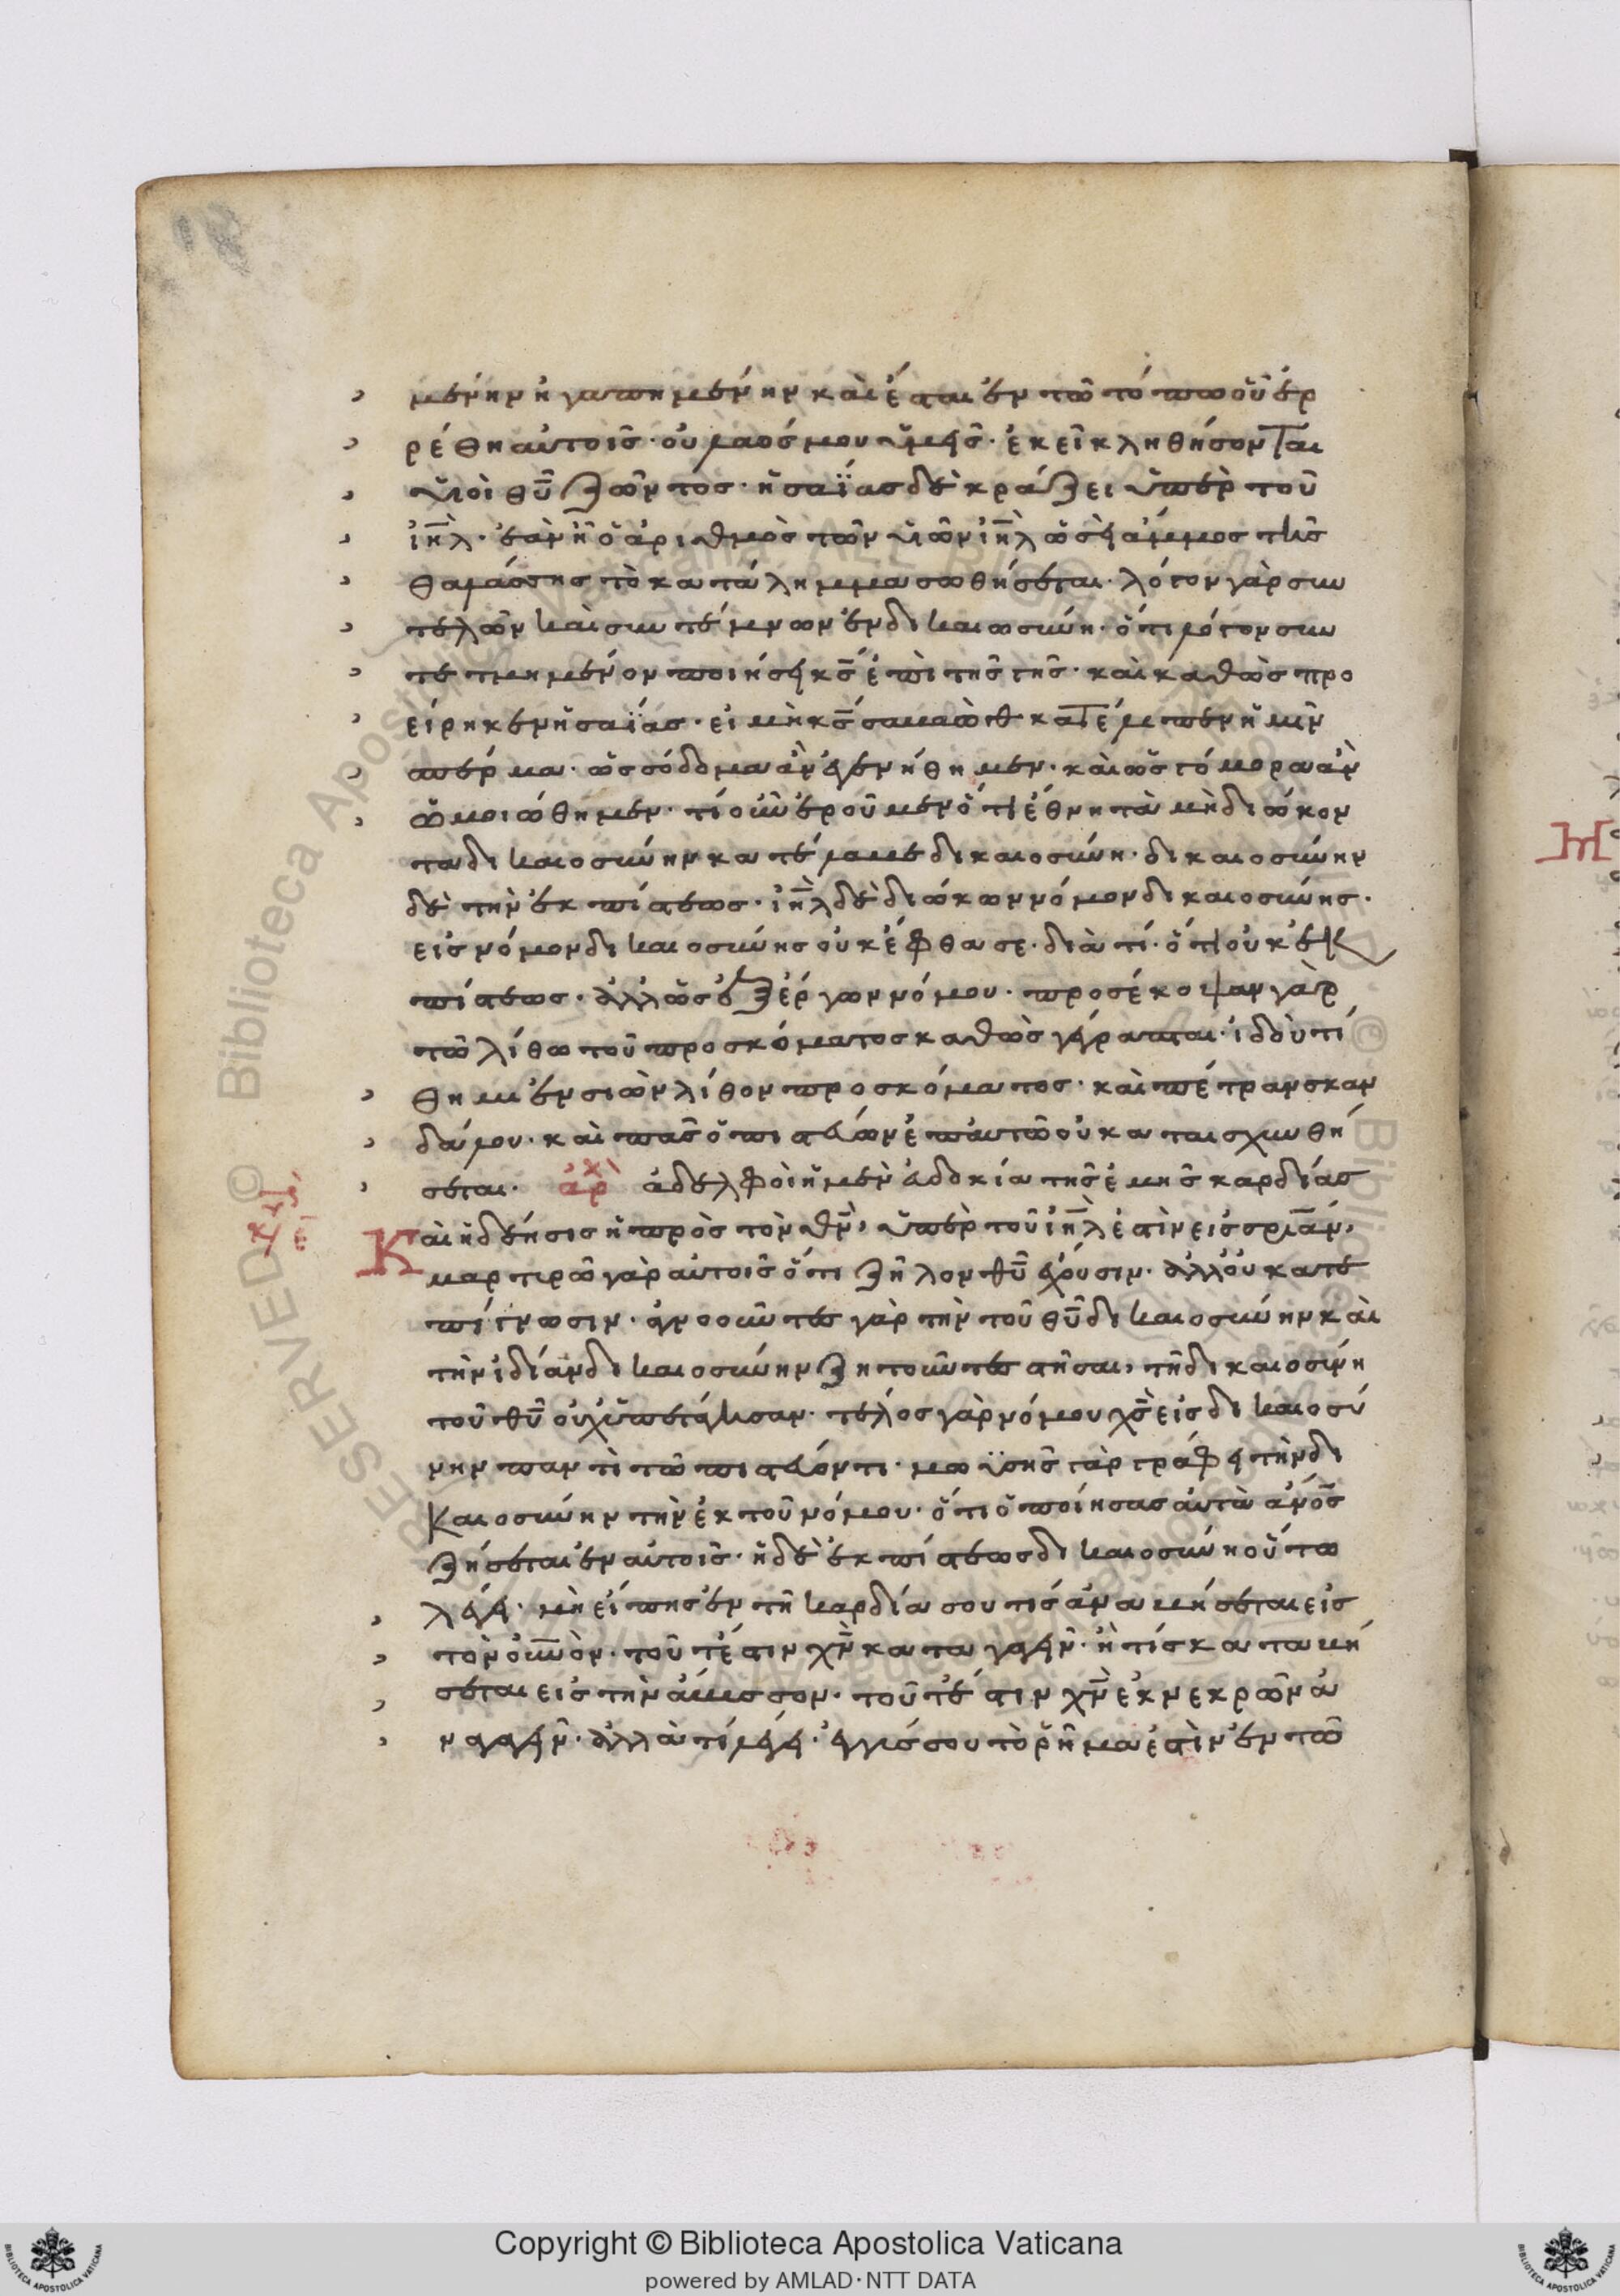 μένην ἠγαπημένην καὶ ἔσται ἐν τῶ τόπω οὗ ἐρ
ρέθη αὐτοῖς· οὐ λαός μου ὑμεῖς· ἐκεῖ κληθήσονται
υἱοὶ θῦ ζῶντος· ἡσαΐας δὲ κράζει ὑπὲρ τοῦ
ἰηλ· ἐὰν ἦ ὁ ἀριθμὸς τῶν υἱῶν ἰηλ ὡσεὶ ἄμμος τῆς
θαλάσσης τὸ κατάλημμα σωθήσεται· λόγον γὰρ συν
τελῶν καὶ συντέμνων ἐν δικαιωσύνη· ὅτι λόγον συν
τετμημένον ποιήσει κς ἐπὶ τῆς γῆς· καὶ καθὼς προ
είρηκεν ἡσαΐας· εἰ μὴ κς σαμαὼθ κατέλιπεν ἡμῖν
σπέρμα· ὡς σόδομα ἂν ἐγενήθημεν· καὶ ὡς γόμορα ἂν
ὡμοιώθημεν· τί οὖν ἐροῦμεν ὅτι ἔθνη τὰ μὴ διώκον
τα δικαιοσύνην κατέλαβε δικαιοσύνη· δικαιοσύνην
δὲ τὴν ἐκ πίστεως· ἰηλ δὲ διώκων νόμον δικαιοσύνης·
εἰς νόμον δικαιοσύνης οὐκ ἔφθασε· διὰ τί· ὅτι οὐκ ἐκ
πίστεως· ἀλλ ὡς ἐξ ἔργων νόμου· προσέκοψαν γὰρ
τῶ λίθω τοῦ προσκόματος καθὼς γέγραπται· ἰδοὺ τί
θημι ἐν σιὼν λίθον προσκόματος· καὶ πέτραν σκαν
δάλου· καὶ πᾶς ὁ πιστεύων ἐπ αὐτῶ οὐ καταισχυνθή
σεται· ἀρχ ἀδελφοὶ ἡ μὲν εὐδοκία τῆς ἐμῆς καρδίας
Καὶ ἡ δέησις ἡ πρὸς τὸν θν, ὑπὲρ τοῦ ἰηλ ἐστὶν εἰς σριαν,
μαρτυρῶ γὰρ αὐτοῖς ὅτι ζῆλον θῦ ἔχουσιν· ἀλλ οὐ κατ ἐ
πίγνωσιν· ἀγνοοῦντες γὰρ τὴν τοῦ θῦ δικαιοσύνην καὶ
τὴν ἰδίαν δικαιοσύνην ζητοῦντες στῆσαι, τῆ δικαιοσύνη
τοῦ θῦ οὐχ ὑπετάγησαν· τέλος γὰρ νόμου χς εἰς δικαιοσύ
νην παντὶ τῶ πιστεύοντι· μωϋσῆς γὰρ γράφει τὴν δι
καιοσύνην τὴν ἐκ τοῦ νόμου· ὅτι ὁ ποίησας αὐτὰ ἀνος
ζήσεται ἐν αὐτοῖς· ἡ δὲ ἐκ πίστεως δικαιοσύνη οὕτω
λέγει· μὴ εἴπης ἐν τῆ καρδία σου τίς ἀναβήσεται εἰς
τὸν οὐνὸν· τοῦτ έστιν χν καταγαγεῖν· ἢ τίς καταβή
σεται εἰς τὴν ἄβυσσον· τοῦτ έστιν χν ἐκ νεκρῶν ἀ
ναγαγεῖν· ἀλλὰ τί λέγει· ἐγγύς σου τὸ ῥῆμα ἐστὶν ἐν τῶ
Copyright © Biblioteca Apostolica Vaticana
powered by AMLAD·NTT DATA